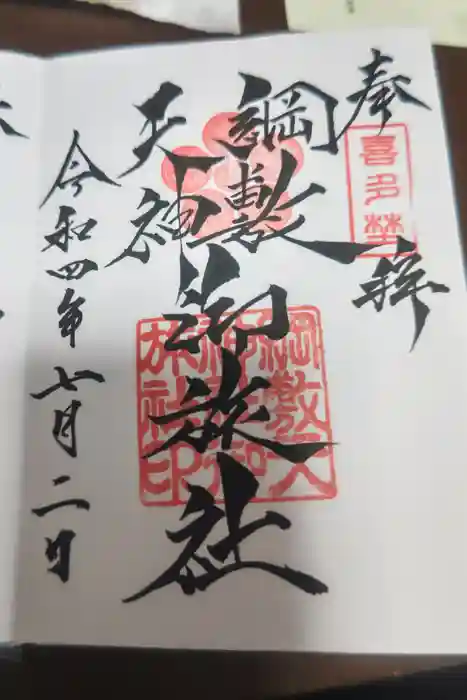 奉拝
喜多埜
綱敷
天神
御旅社
綱敷天
神御
旅社印
令和四年七月二日